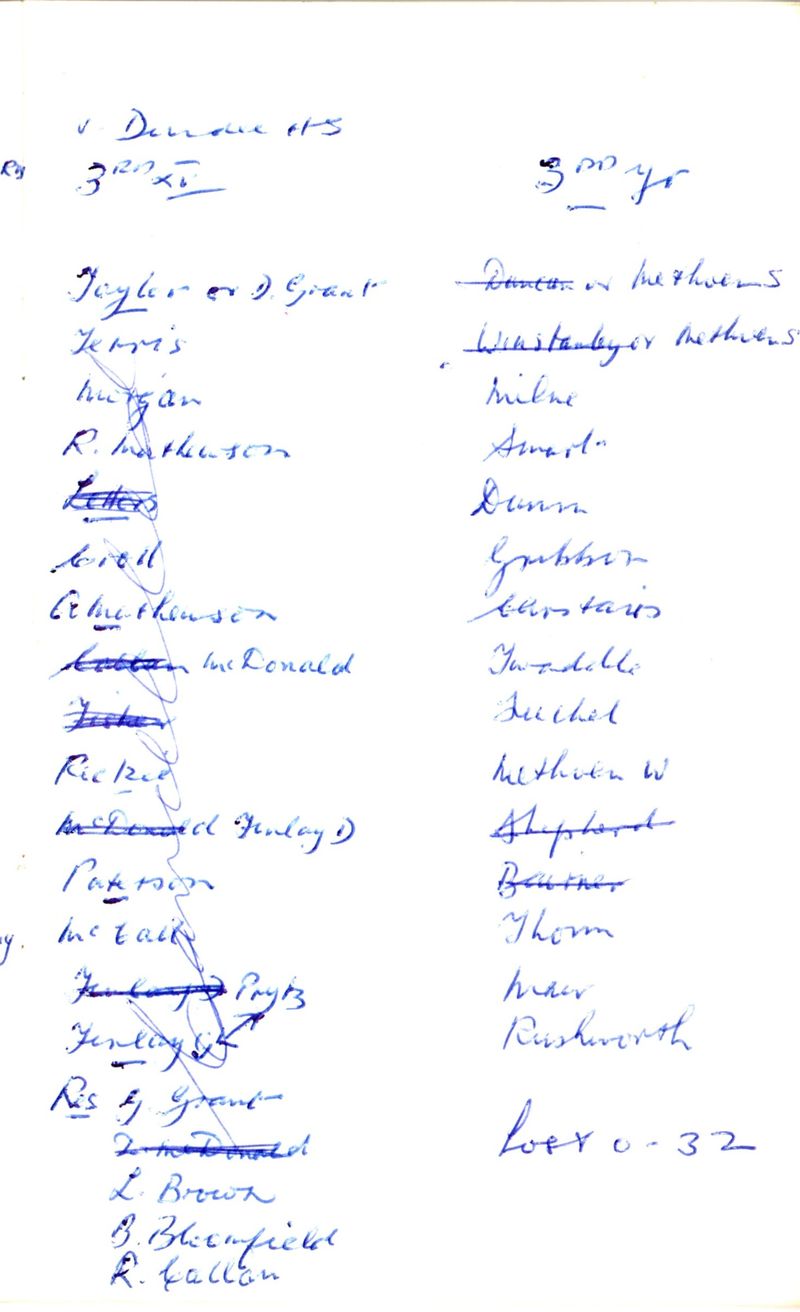 v. Dundee HS
Res
3RD XV
Taylor or D. Grant
Ferris
Morgan
R. Mathewson
Letters
Croll
A. Mathewson
Callan McDonald
Fisher
Rickie
McDonald Finlay D
Paterson
McCall
Finlay D Prytz
Finlay G
Res G Grant
McDonald
L. Brown
B. Bloomfield
R. Callan
3RD yr
Duncan or Methven S
Winstanley or Methven S
Milne
Smart
Dunn
Gribbon
Carstairs
Twaddle
Methven W
Shepherd
Thom
Mair
Rushworth
Lost 0-32